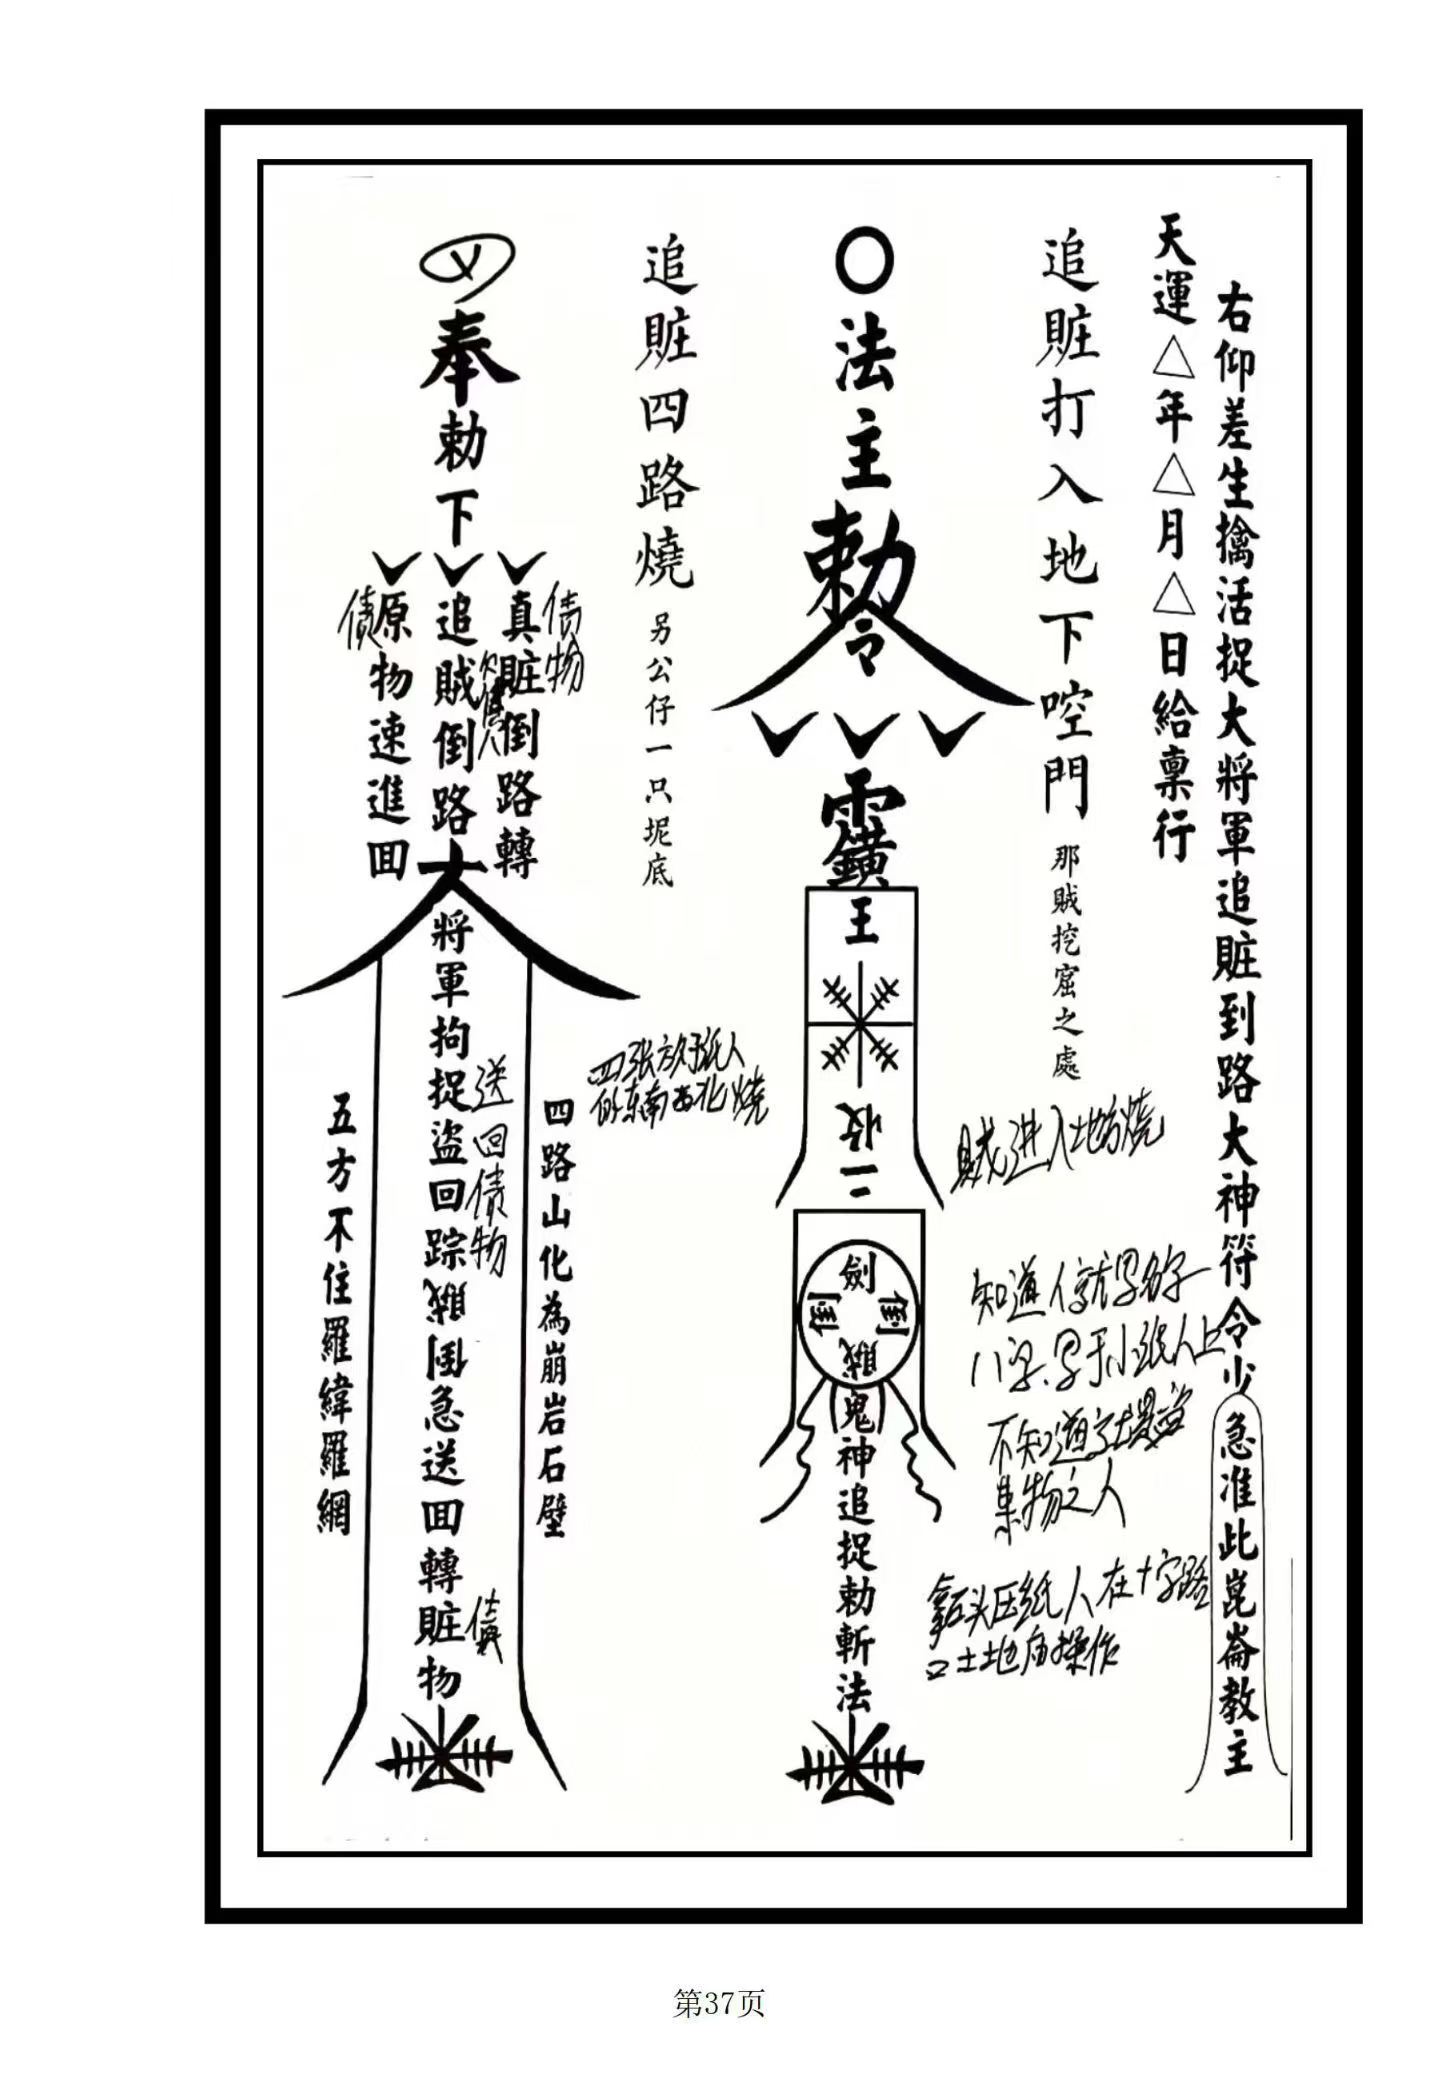 右仰差生擒活捉大將軍追賍到路大神符令
急准此崑崙教主
天運△年△月△日給稟行
追賍打入地下啌門
那賊挖窟之處
賊进入地方烧
知道人就写名字
八字.写于小纸人上
不知道就是盗
集物之人
拿石头压纸人在十字路
口土地庙操作
〇法主勅令
王
收
二
劍
倒
倒
賊
鬼神追捉勅斬法
追賍四路燒
另公仔一只坭底
四张放好纸人
东南西北烧
奉勅下
真賍倒路轉
债物
追賊倒路
欠债人
原物速進回
债
大將軍拘捉盜回踪賊倒急送回轉賍物
送回债物
债
四路山化為崩岩石壁
五方不住羅緯羅網
第37页